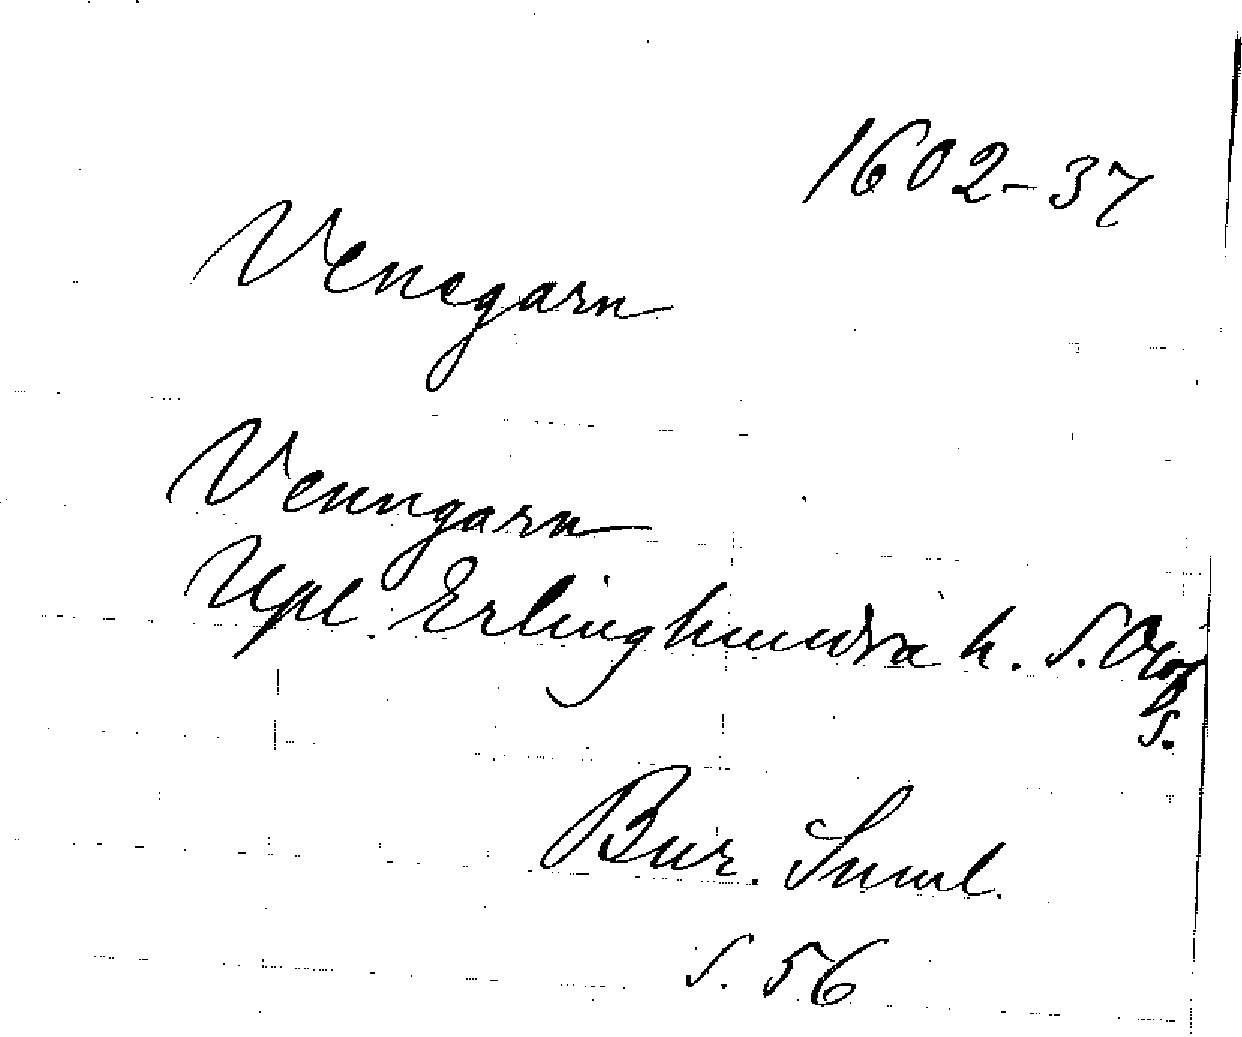 1602-37
Venegarn
Venngarn
Upl. Erlinghundra h. S. 
s.
Bur. Suml.
s. 56